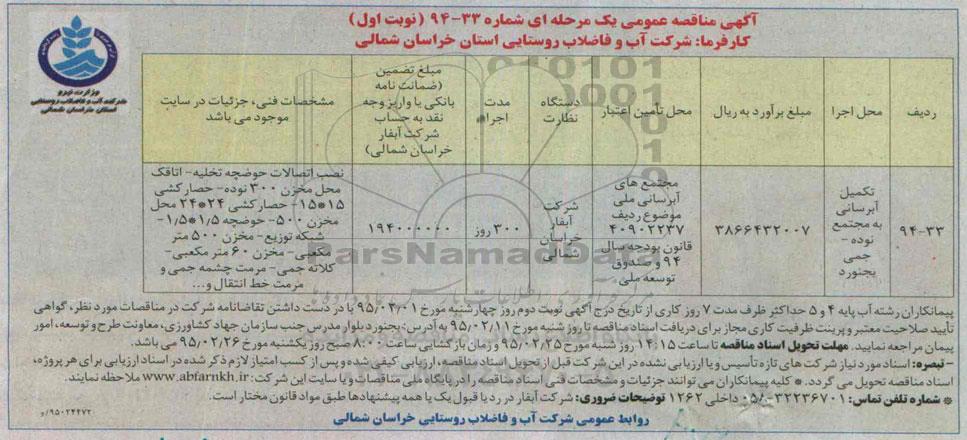 آگهی مناقصه عمومی یک مرحله ای شماره ۳۳-۹۴ (نوبت اول)
کارفرما: شرکت آب و فاضلاب روستایی استان خراسان شمالی
وزارت نیرو
شرکت آب و فاضلاب روستایی
استان خراسان شمالی
ردیف
محل اجرا
مبلغ برآورد به ریال
محل تأمین اعتبار
دستگاه
نظارت
مدت
اجرا
مبلغ تضمین
(ضمانت نامه
بانکی یا واریز وجه
نقد به حساب
شرکت آبفار
خراسان شمالی)
مشخصات فنی، جزئیات در سایت
موجود می باشد
۹۴-۳۳
تکمیل
آبرسانی
به مجتمع
نوده -
جمی
بجنورد
۳۸۶۶۴۳۲۰۰۷
مجتمع های
آبرسانی ملی
موضوع ردیف
۴۰۹۰۲۲۳۷
قانون بودجه سال
۹۴ و صندوق
توسعه ملی
شرکت
آبفار
خراسان
شمالی
۳۰۰ روز
۱۹۴۰۰۰۰۰۰
نصب اتصالات حوضچه تخلیه- اتاقک
محل مخزن ۳۰۰ نوده- حصارکشی
۱۵*۱۵- حصارکشی ۲۴*۲۴ محل
مخزن ۵۰۰- حوضچه ۱/۵*۱/۵-
شبکه توزیع- مخزن ۵۰۰ متر
مکعبی- مخزن ۶۰ متر مکعبی-
کلاته جمی- مرمت چشمه جمی و
مرمت خط انتقال و...
ParsNamadData
پیمانکاران رشته آب پایه ۴ و ۵ حداکثر ظرف مدت ۷ روز کاری از تاریخ درج آگهی نوبت دوم روز چهارشنبه مورخ ۹۵/۰۲/۰۱ با در دست داشتن تقاضانامه شرکت در مناقصات مورد نظر، گواهی
تأیید صلاحیت معتبر و پرینت ظرفیت کاری مجاز برای دریافت اسناد مناقصه تا روز شنبه مورخ ۹۵/۰۲/۱۱ به آدرس: بجنورد بلوار مدرس جنب سازمان جهاد کشاورزی، معاونت طرح و توسعه، امور
پیمان مراجعه نمایند. مهلت تحویل اسناد مناقصه تا ساعت ۱۴:۱۵ روز شنبه مورخ ۹۵/۰۲/۲۵ و زمان بازگشایی ساعت ۸:۰۰ صبح روز یکشنبه مورخ ۹۵/۰۲/۲۶ می باشد.
- تبصره: اسناد مورد نیاز شرکت های تازه تأسیس و یا ارزیابی نشده در این شرکت قبل از تحویل اسناد مناقصه، ارزیابی کیفی شده و پس از کسب امتیاز لازم ذکر شده در اسناد ارزیابی برای هر پروژه،
اسناد مناقصه تحویل می گردد. * کلیه پیمانکاران می توانند جزئیات و مشخصات فنی اسناد مناقصه را در پایگاه ملی مناقصات و یا سایت این شرکت: www.abfarnkh.ir ملاحظه نمایند.
* شماره تلفن تماس: ۳۲۲۳۶۷۰۱-۰۵۸ داخلی ۱۲۶۲ توضیحات ضروری: شرکت آبفار در رد یا قبول یک یا همه پیشنهادها طبق مواد قانون مختار است.
روابط عمومی شرکت آب و فاضلاب روستایی خراسان شمالی
۹۵۰۲۴۴۷۲/و